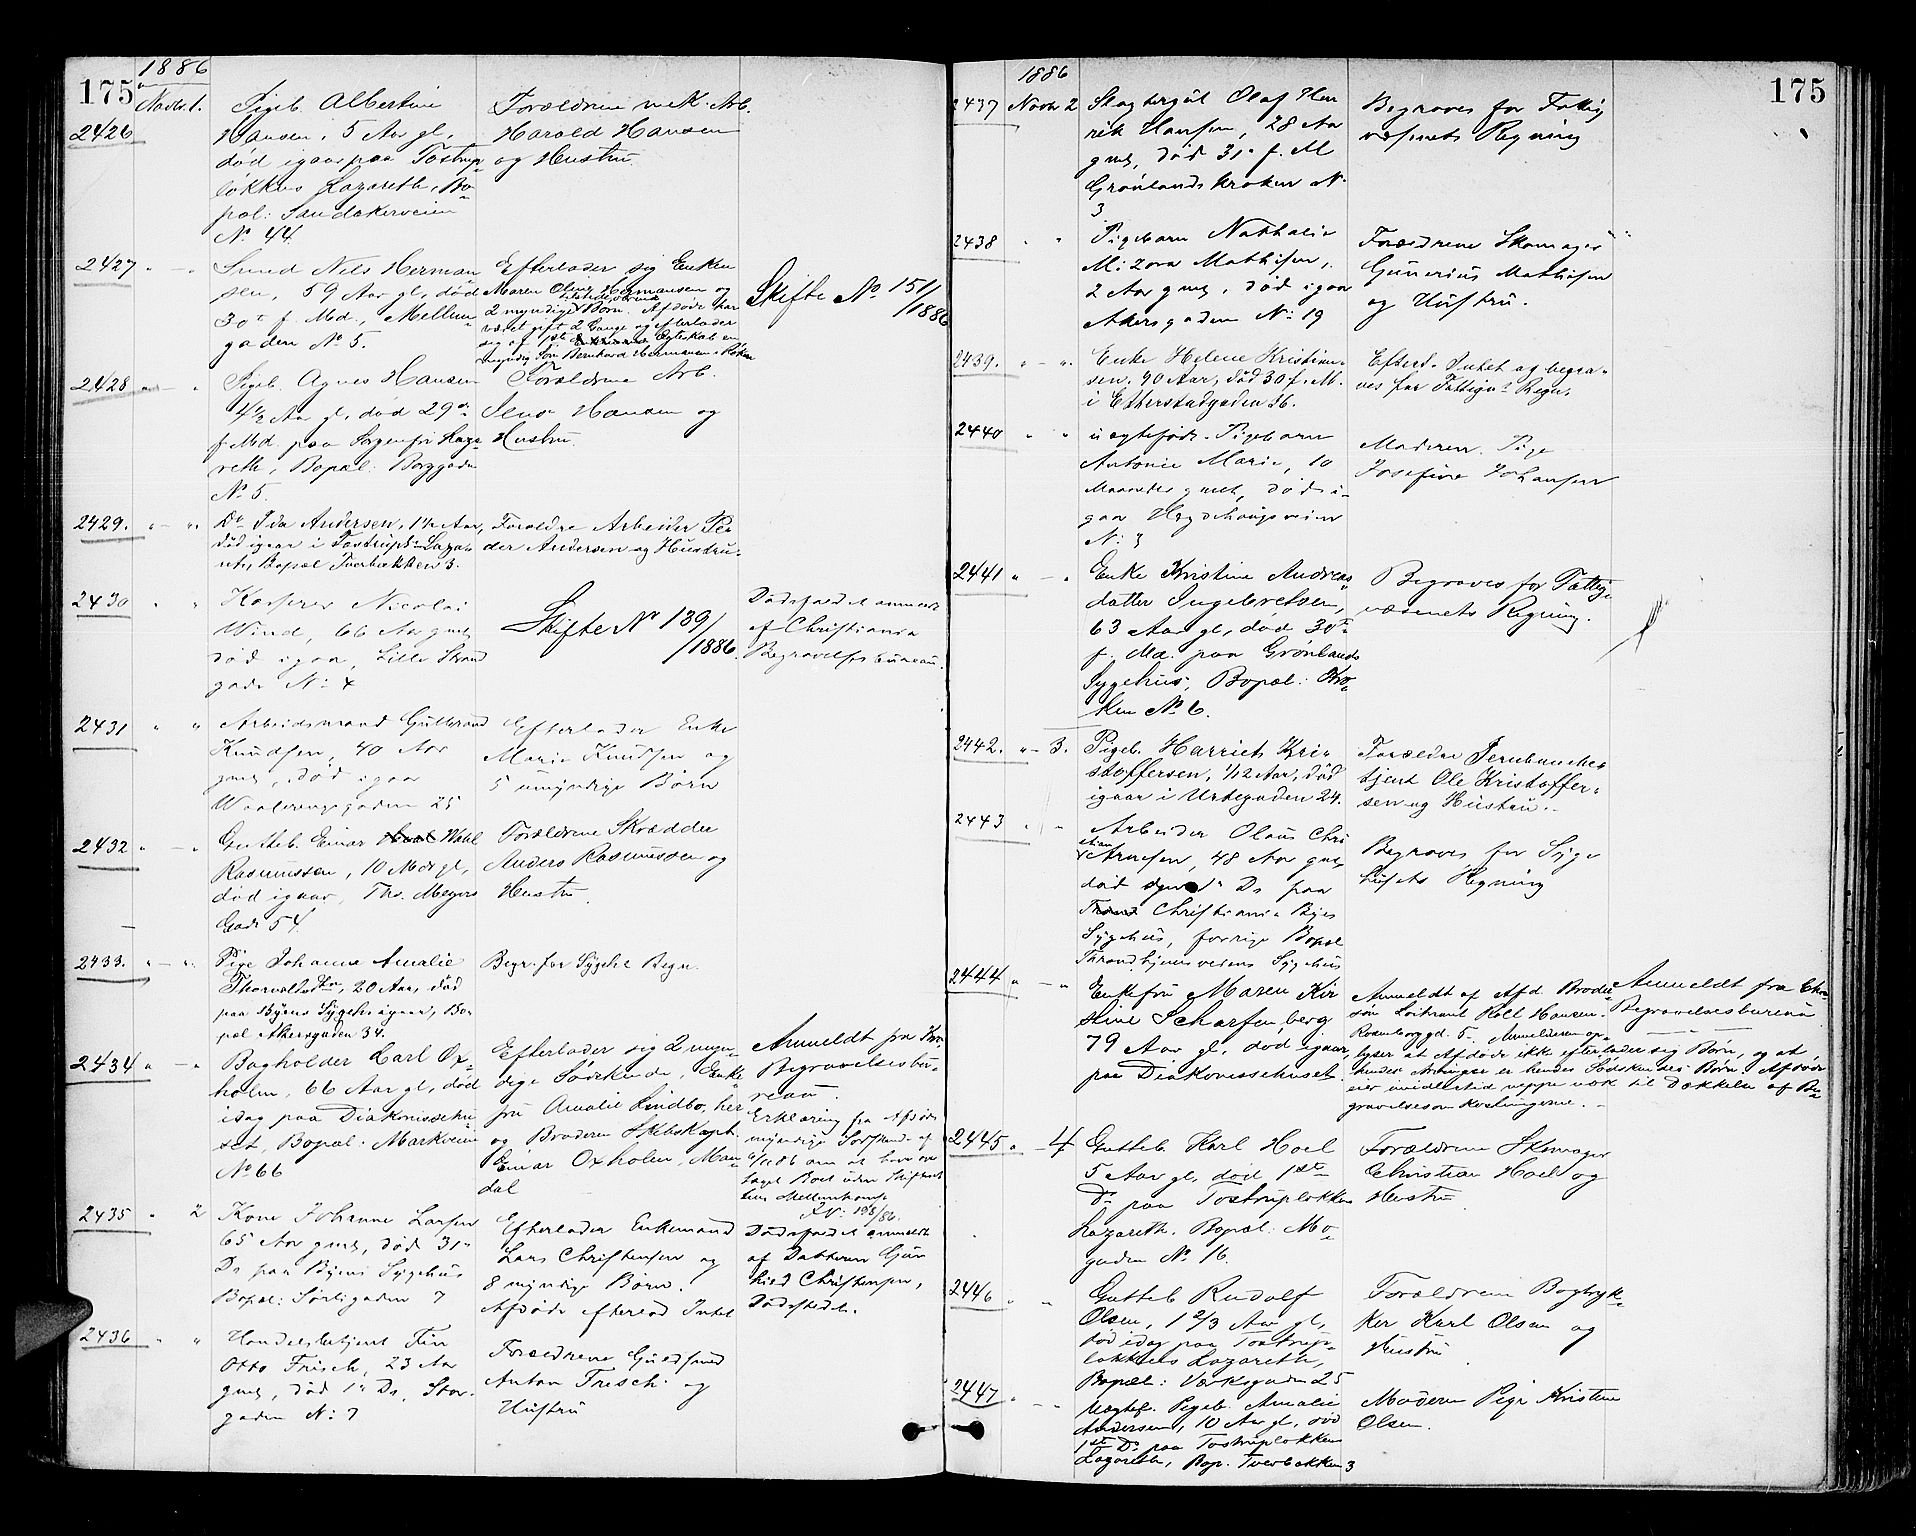 175
1886
Novbr. 1.
2426
Pigeb. Albertine
Hansen, 5 Aar gl.,
død igaar paa Tostrup-
løkkens Lazareth, Bo-
pæl: Sandakerveien
No 44.
Forældrene mek. Arb.
Harald Hansen
og Hustru.
2427
Smed Nils Herman-
sen, 59 Aar gl., død
30te f. Md., Mellem-
gaden No 5.
Efterlader sig Enken
Maren Oline Hermansen og
2 myndige Børn. Afdøde har
været gift 2 Gange og efterlader
sig af 1ste Egteskab en
myndig Søn Bernhard Hermansen
Skifte No 151/
/1886
2428
Pigeb. Agnes Hansen
4½ Aar gl., død 29de
f. Md. paa Sorgenfri Laza-
reth, Bopæl: Borggaden
No 5.
Forældrene Arb.
Jens Hansen og
Hustru.
2429.
Do Ida Andersen, 1½ Aar,
død igaar i Tostrupl. Laza-
reth, Bopæl Tverbakken 3.
Forældre Arbeider Pe-
der Andersen og Hustru.
2430
Kasperer Nicolai
Wind, 66 Aar gml,
død igaar, Lille Strand
gade No 4
Skifte No 139/
/1886.
Dødsfaldet anmeldt
af Christiania
Begravelsesbureau.
2431
Arbeidsmand Gulbrand
Knudsen, 40 Aar
gml, død igaar
Waalerengsgaden 25
Efterlader Enke
Marie Knudsen og
5 umyndige Børn
2432
Gutteb. Einar Wahl
Rasmussen, 10 Mdr gl.,
død igaar, Ths. Meyers
Gade 54.
Forældrene Skrædder
Anders Rasmussen og
Hustru.
2433.
Pige Johanne Amalie
Thorvaldsdtr, 20 Aar, død
paa Byens Sygeh. igaar, Bo-
pæl Akersgaden 34.
Begr. for Sygeh. Regn.
2434
Bogholder Carl Ox-
holm, 66 Aar gl., død
idag paa Diakonissehu-
set, Bopæl: Markveien
No 66
Efterlader sig 2 myn-
dige Sødskende, Enke-
fru Amalie Lindbo, her
og Broderen Skibskapt.
Einar Oxholm, Man-
dal
Anmeldt fra Chra.
Begravelsesbu-
reau.
Erklæring fra Afdødes
myndige Sødskende af
6/11 86 om at have over-
taget Boet uden Skifteret-
tens Mellemkomst
2435
2
Kone Johanne Larsen
65 Aar gml, død 31te
Ds paa Byens Sygehus
Bopæl: Sørligaden 7
Efterlader Enkemand
Lars Christensen og
8 myndige Børn.
Afdøde efterlod Intet
Dødsfaldet anmeldt
af Datteren Gun
hild Christensen,
Dødsstedet.
2436
Handelsbetjent Finn
Otto Frisch, 23 Aar
gml, død 1te Ds, Stor-
gaden No 7
Forældrene Guldsmed
Anton Frisch og
Hustru
175
1886
2437
Novbr 2
Slagtergut Olaf Hen
rik Hansen, 28 Aar
gml, død 31te f. M
Grønlandskroken No
3
Begraves for Fattig
væsenets Regning
2438
Pigebarn Nathalie
Mizora Mathisen,
2 Aar gml, død igaar
Akersgaden No 19
Forældrene Skomager
Gunerius Mathisen
og Hustru.
2439.
Enke Helene Kristian-
sen, 70 Aar, død 30 f. M.
i Etterstadgaden 16.
Efterl. Intet og begra-
ves for Fattigvs Regn.
2440
uægtefødt Pigebarn
Antonie Marie, 10
Maaneder gml, død i-
gaar Hegdehaugsveien
No 3
Moderen Pige
Josefine Johansen
2441
Enke Kristine Andreas-
datter Ingebretsen,
63 Aar gl., død 30te
f. Md. paa Grønlands
Sygehus, Bopæl: Kro-
ken No 6.
Begraves for Fattig-
væsenets Regning.
2442.
3.
Pigeb. Harriet Kri-
stoffersen, 1/12 Aar, død
igaar i Urtegaden 24.
Forældre Jernbanebe-
tjent Ole Kristoffer-
sen og Hustru.
2443
Arbeider Olaus Chri
stian Arnesen, 48 Aar gml,
død Ds paa
Christiania Byes
Sygehus, forrige Bopæl
Throndhjemsveiens Sygehus
Begraves for Syge
husets Regning
2444
Enkefru Maren Kir
stine Scharfenberg
79 Aar gl., død igaar
paa Diakonissehuset
Anmeldt af Afd. Broder-
søn Loitnant Holl Hansen.
Rosenborggd. 5. Anmelderen op-
lyser at Afdøde ikke efterlader sig Børn, og at
hendes Arvinger er hendes Sødskendes Børn. Afdøde
eier imidlertid neppe nok til Dækkelse af Be-
gravelsesomkostningerne.
Anmeldt fra Chra
Begravelsesbureau
2445
4
Gutteb. Karl Hoel
5 Aar gl., død 1ste
Ds paa Tostrupløkkens
Lazareth. Bopæl: Mo-
gaden No 16.
Forældrene Skomager
Christian Hoel og
Hustru
2446
Gutteb. Rudolf
Olsen, 1 2/3 Aar gl.,
død idag paa Tostrup-
løkkens Lazareth,
Bopæl: Værksgaden 25
Forældrene Bogtryk-
ker Karl Olsen og
Hustru
2447
Uægtef. Pigeb. Amalie
Andersen, 10 Aar gl., død
1ste Ds paa Tostrupløkkens
Lazareth, Bop. Tverbakken 3
Moderen Pige Kristine
Olsen.